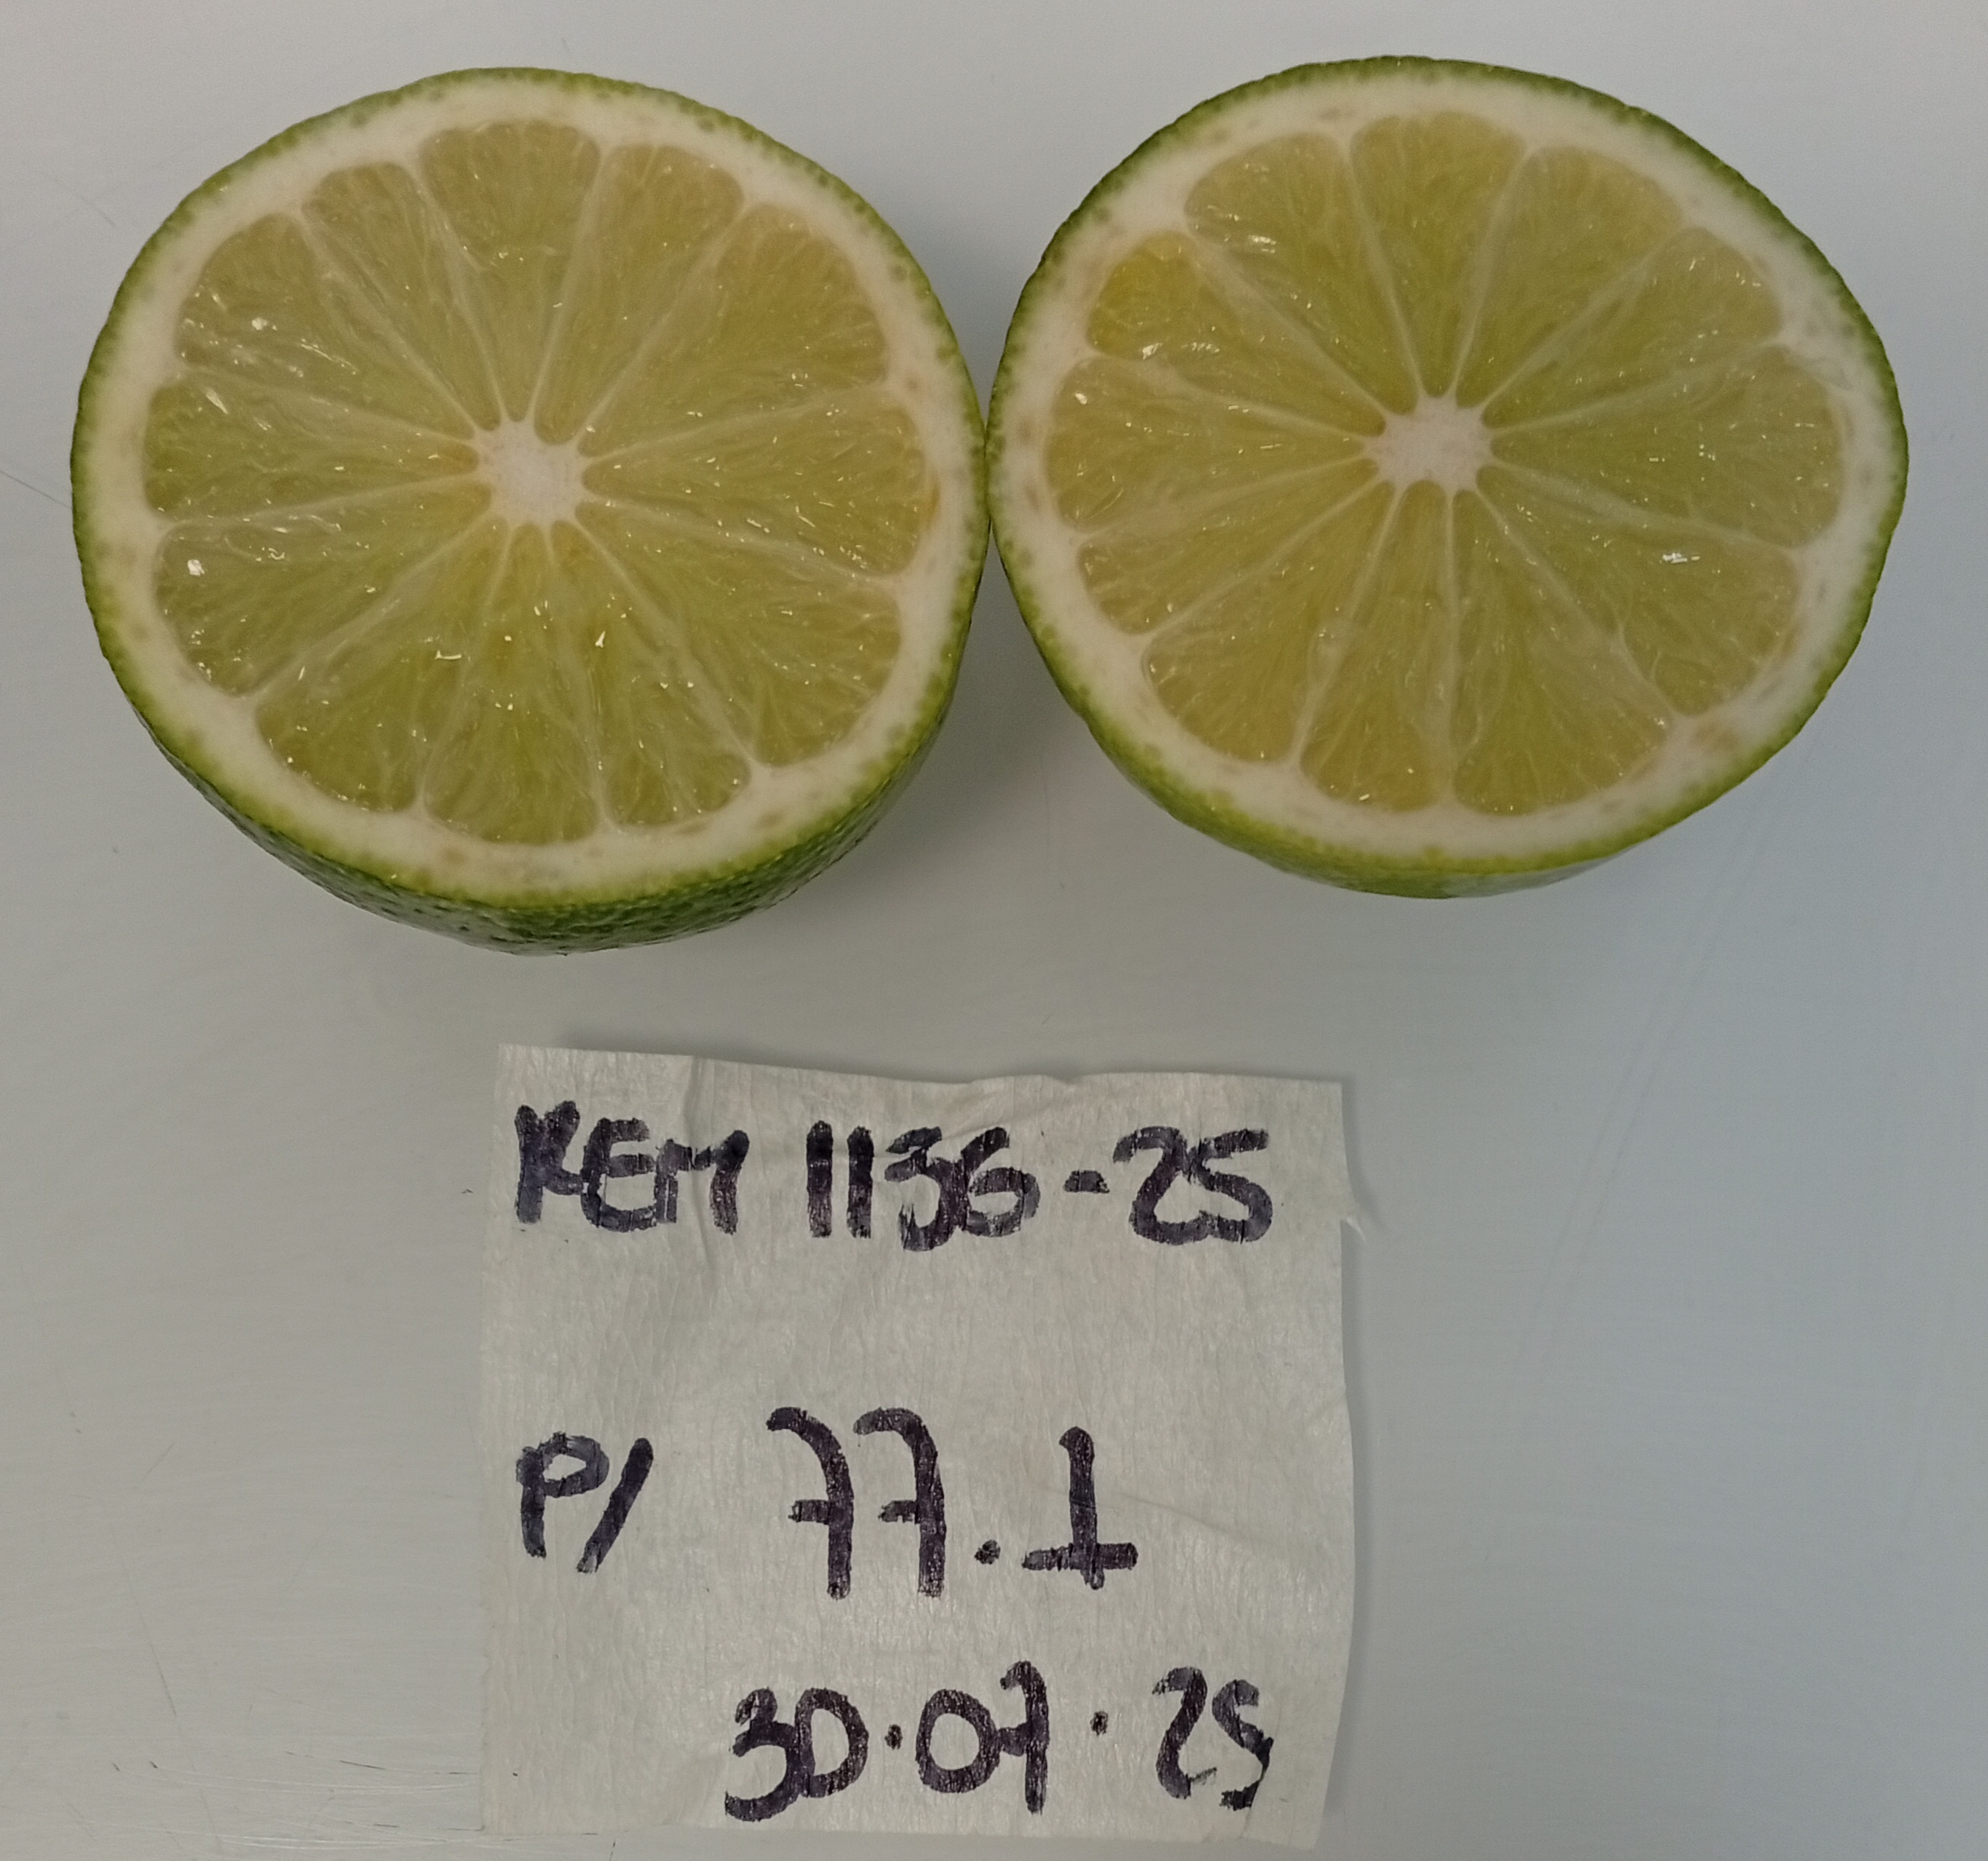 REM 1136-25
P/ 77.1
30.07.25